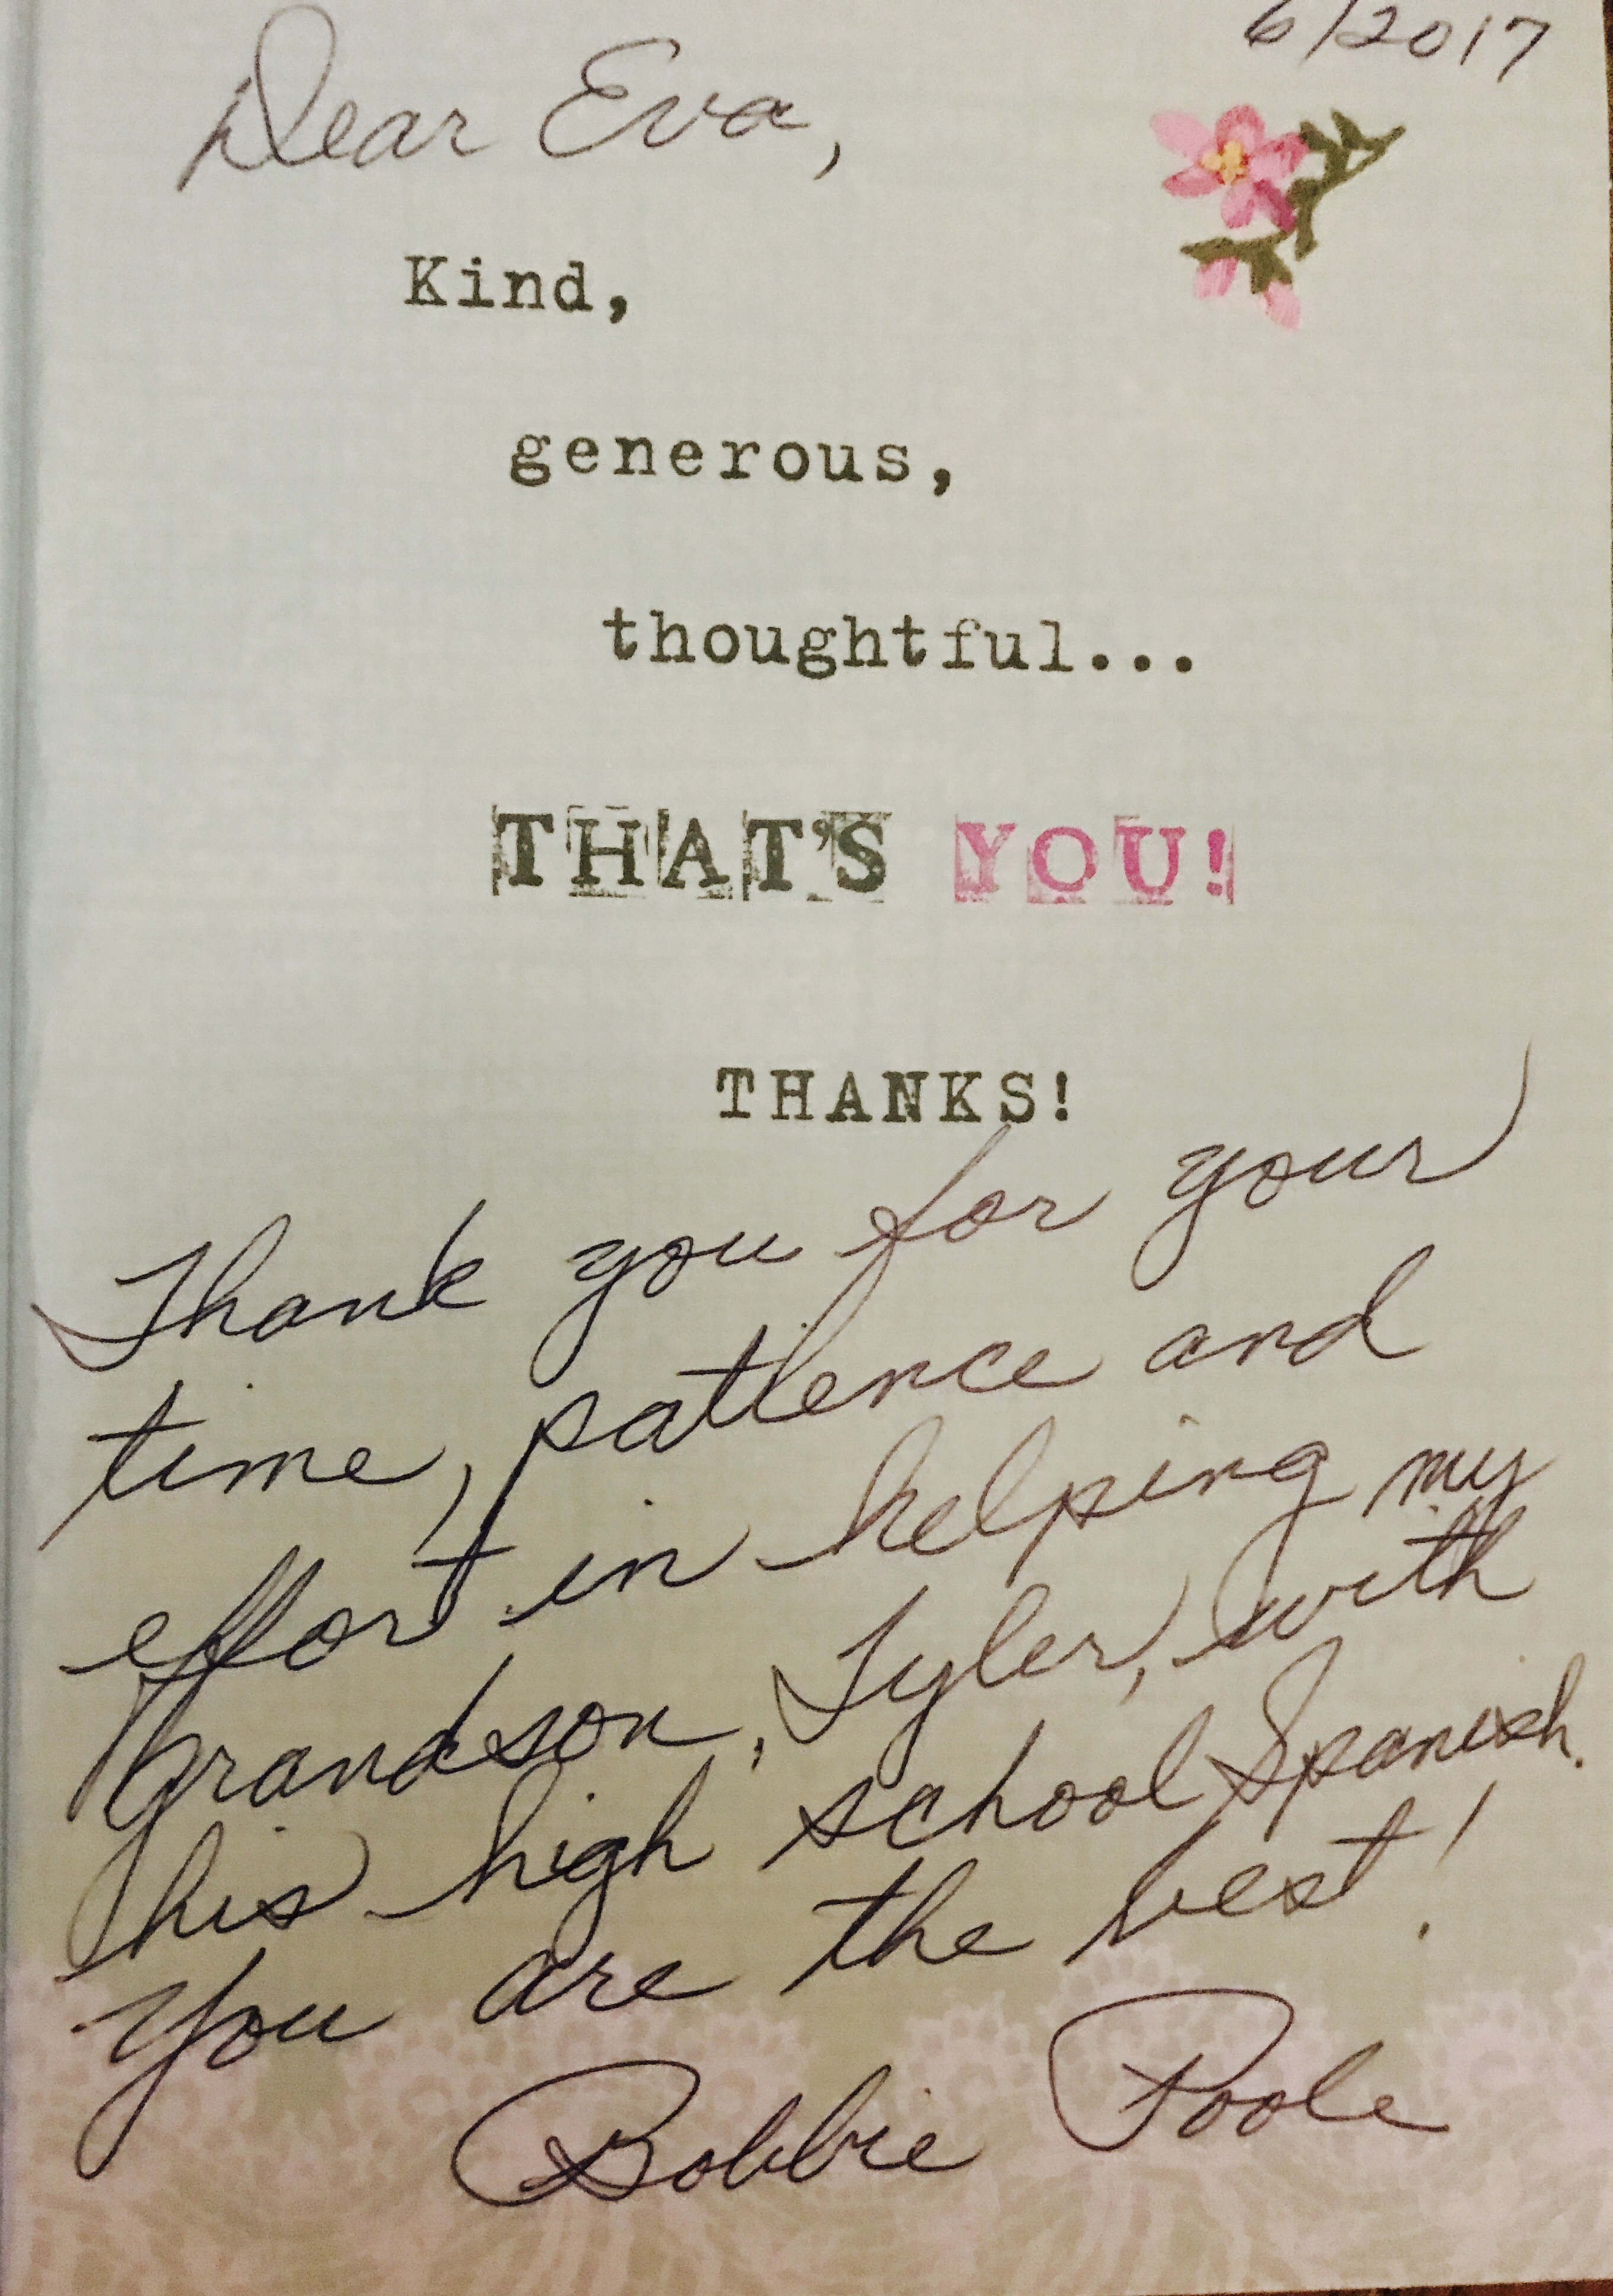 6/2017
Dear Eva,
Kind,
generous,
thoughtful...
THAT'S YOU!
THANKS!
Thank you for your
time, patience and
effort in helping my
Grandson, Tyler, with
his high school Spanish.
You are the best!
Bobbie Poole